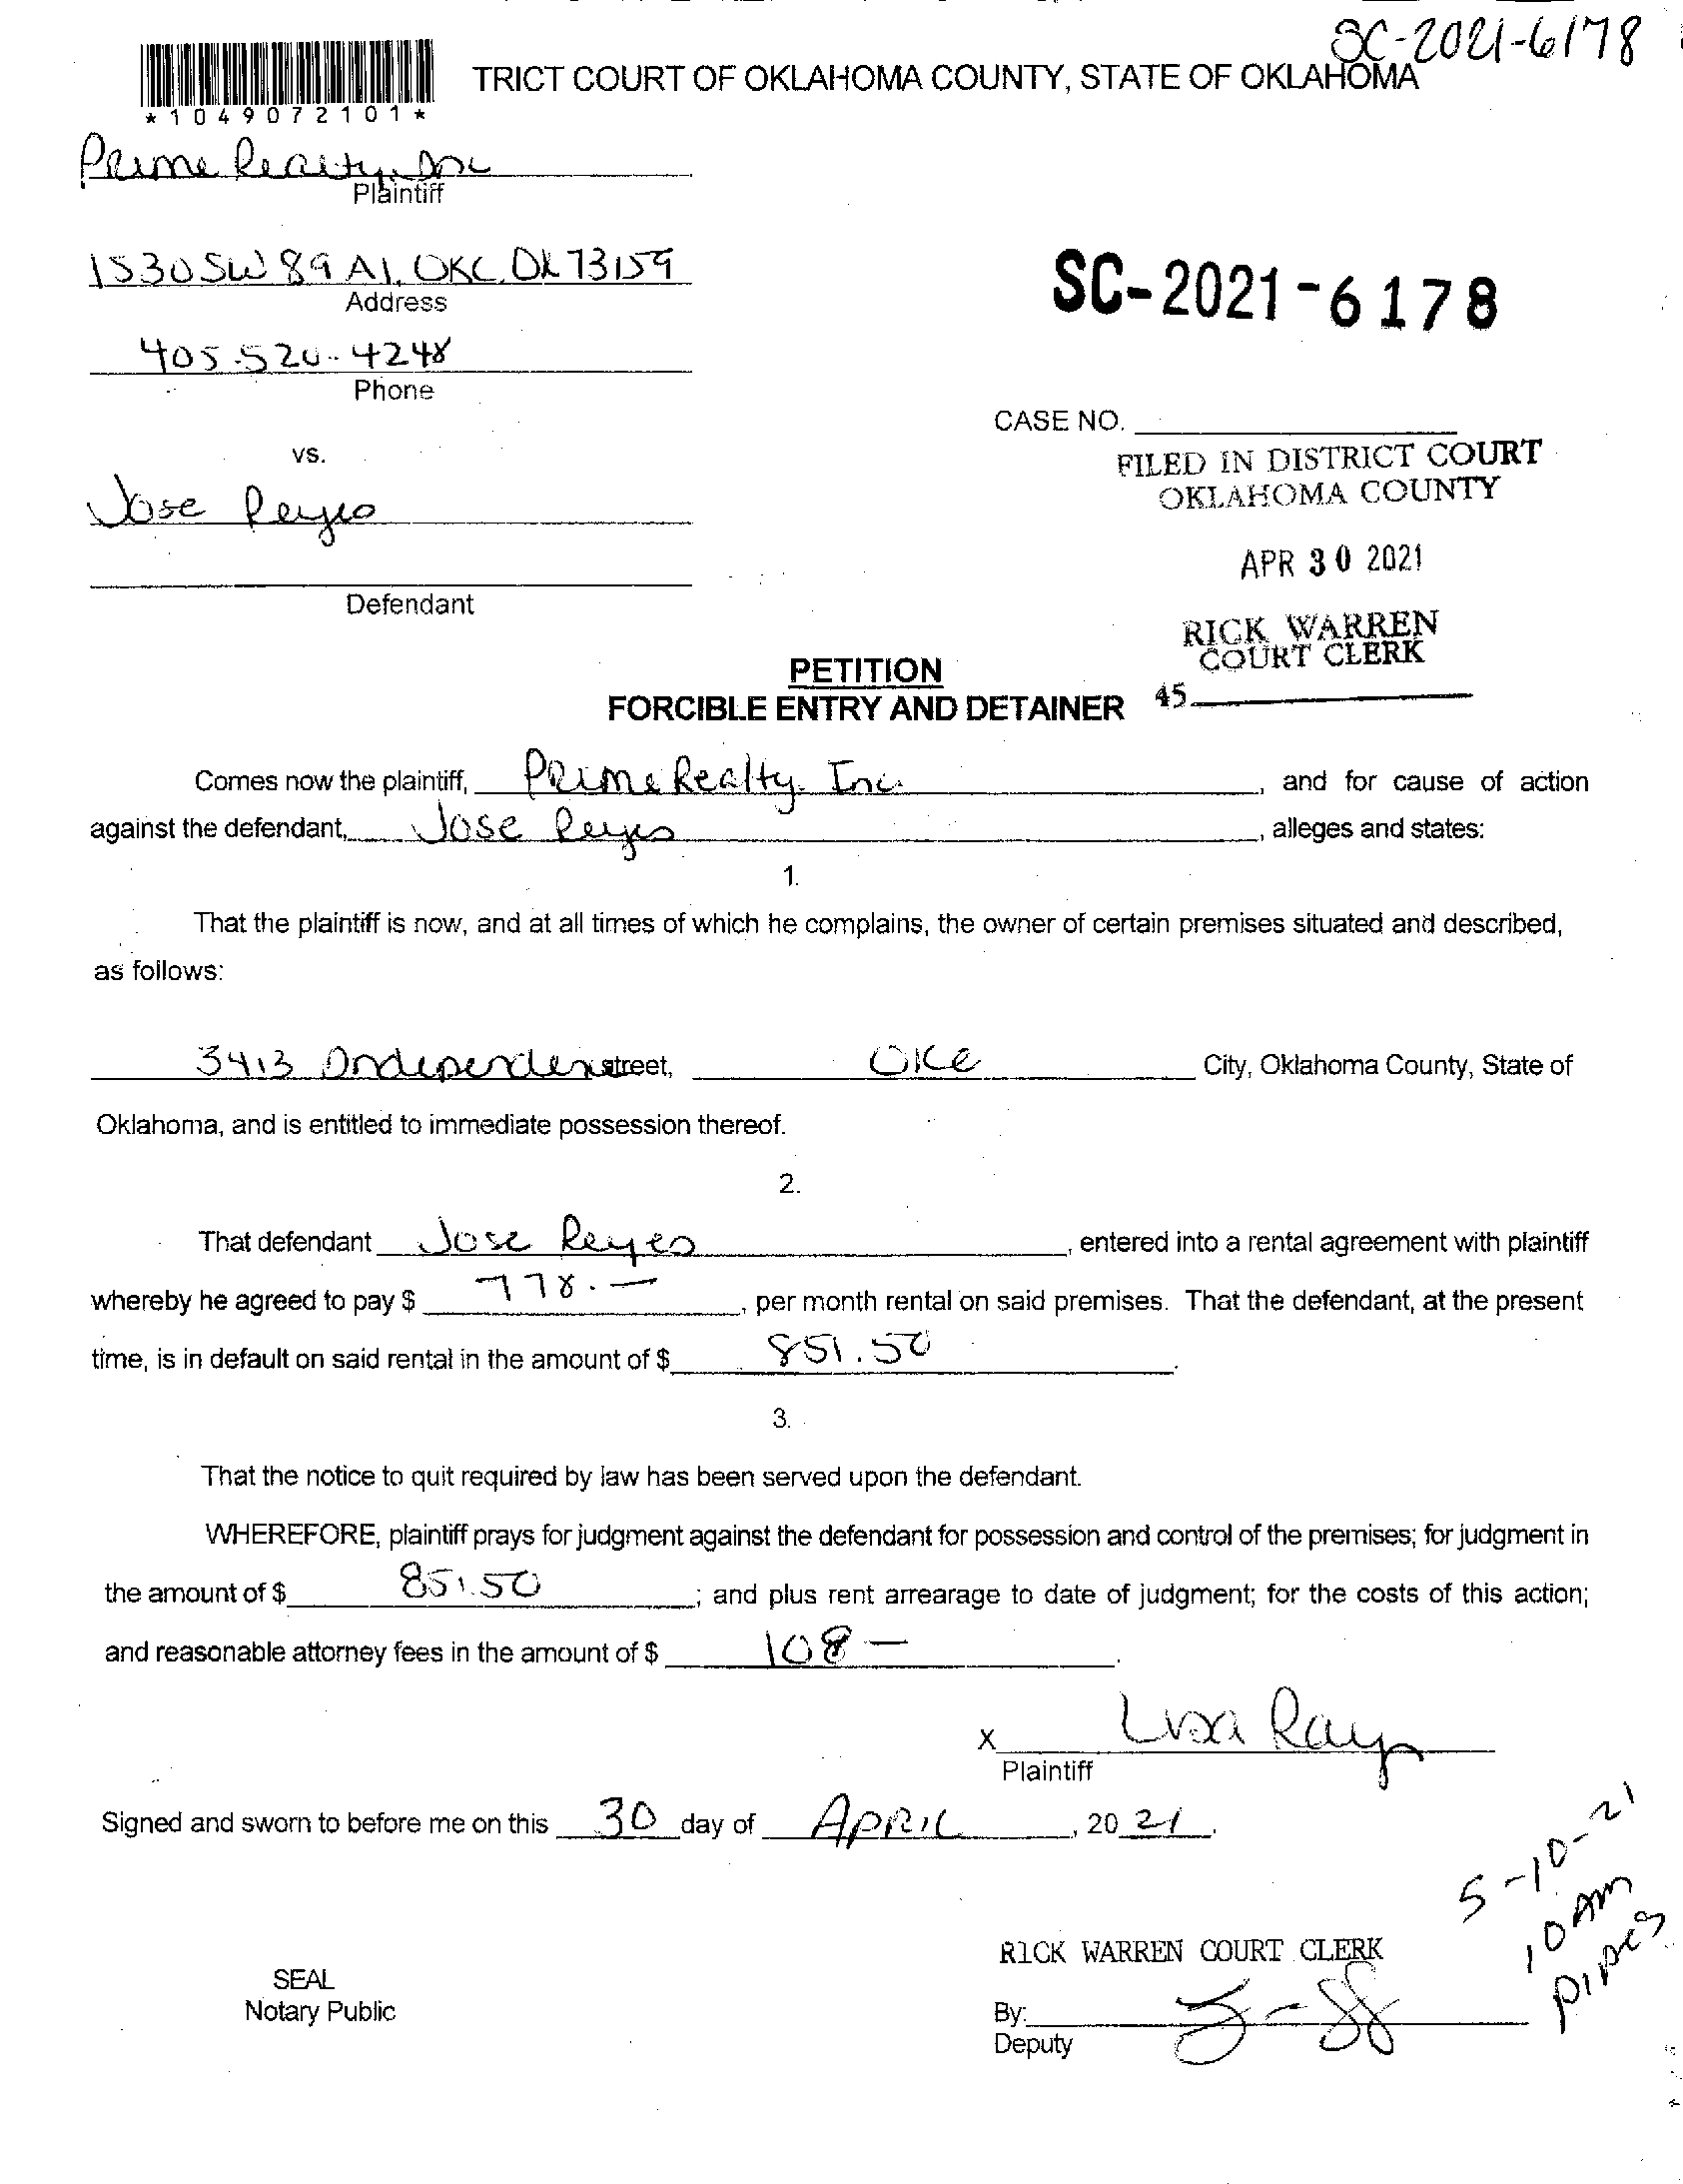 SC-2021-6178
TRICT COURT OF OKLAHOMA COUNTY, STATE OF OKLAHOMA
*1049072101*
Prime Realty, Inc
Plaintiff
1530 SW 89 A1, OKC, OK 73159
Address
SC-2021-6178
405-520-4248
Phone
CASE NO.
vs.
FILED IN DISTRICT COURT
OKLAHOMA COUNTY
Jose Reyes
APR 30 2021
Defendant
RICK WARREN
COURT CLERK
PETITION
45
FORCIBLE ENTRY AND DETAINER
Comes now the plaintiff, Prime Realty, Inc. , and for cause of action
against the defendant, Jose Reyes , alleges and states:
1.
That the plaintiff is now, and at all times of which he complains, the owner of certain premises situated and described,
as follows:
3413 street, OKC City, Oklahoma County, State of
Oklahoma, and is entitled to immediate possession thereof.
2.
That defendant Jose Reyes , entered into a rental agreement with plaintiff
whereby he agreed to pay $ 778.— , per month rental on said premises. That the defendant, at the present
time, is in default on said rental in the amount of $ 851.50 .
3.
That the notice to quit required by law has been served upon the defendant.
WHEREFORE, plaintiff prays for judgment against the defendant for possession and control of the premises; for judgment in
the amount of $ 851.50 ; and plus rent arrearage to date of judgment; for the costs of this action;
and reasonable attorney fees in the amount of $ 108 — .
x Lisa Ray
Plaintiff
Signed and sworn to before me on this 30 day of APRIL , 20 21 .
5-10-21
10 AM
RICK WARREN COURT CLERK
SEAL
Notary Public
By:
Deputy